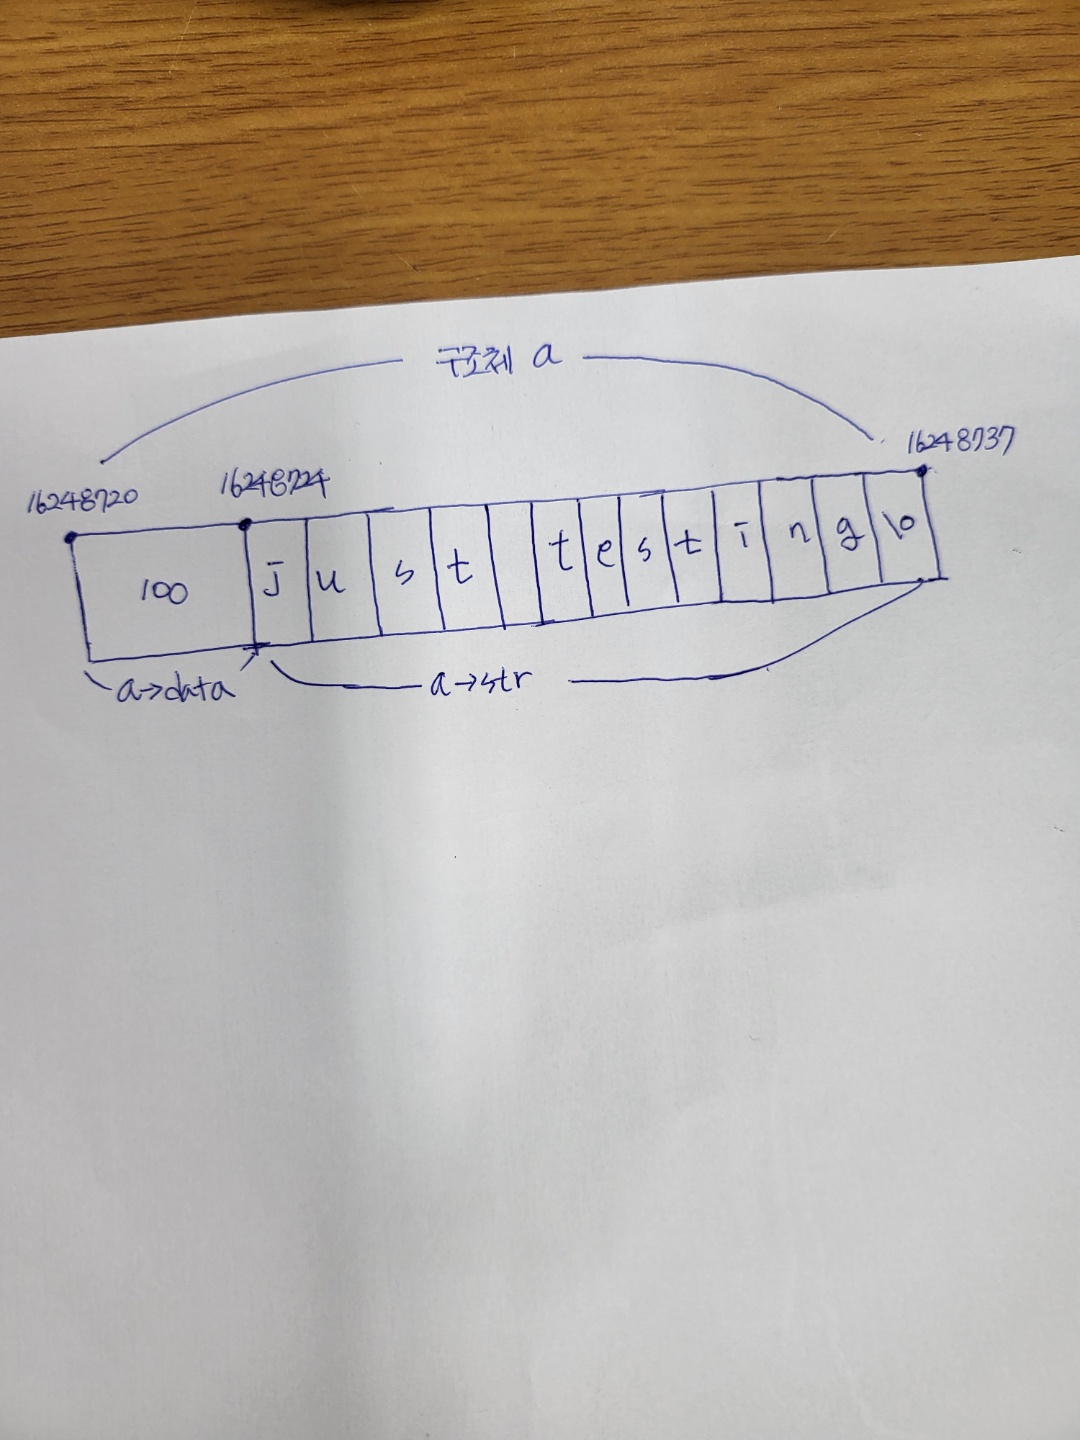 구조체 a
16248720 16248724 16248737
100 j u s t t e s t i n g \0
a→data a→str